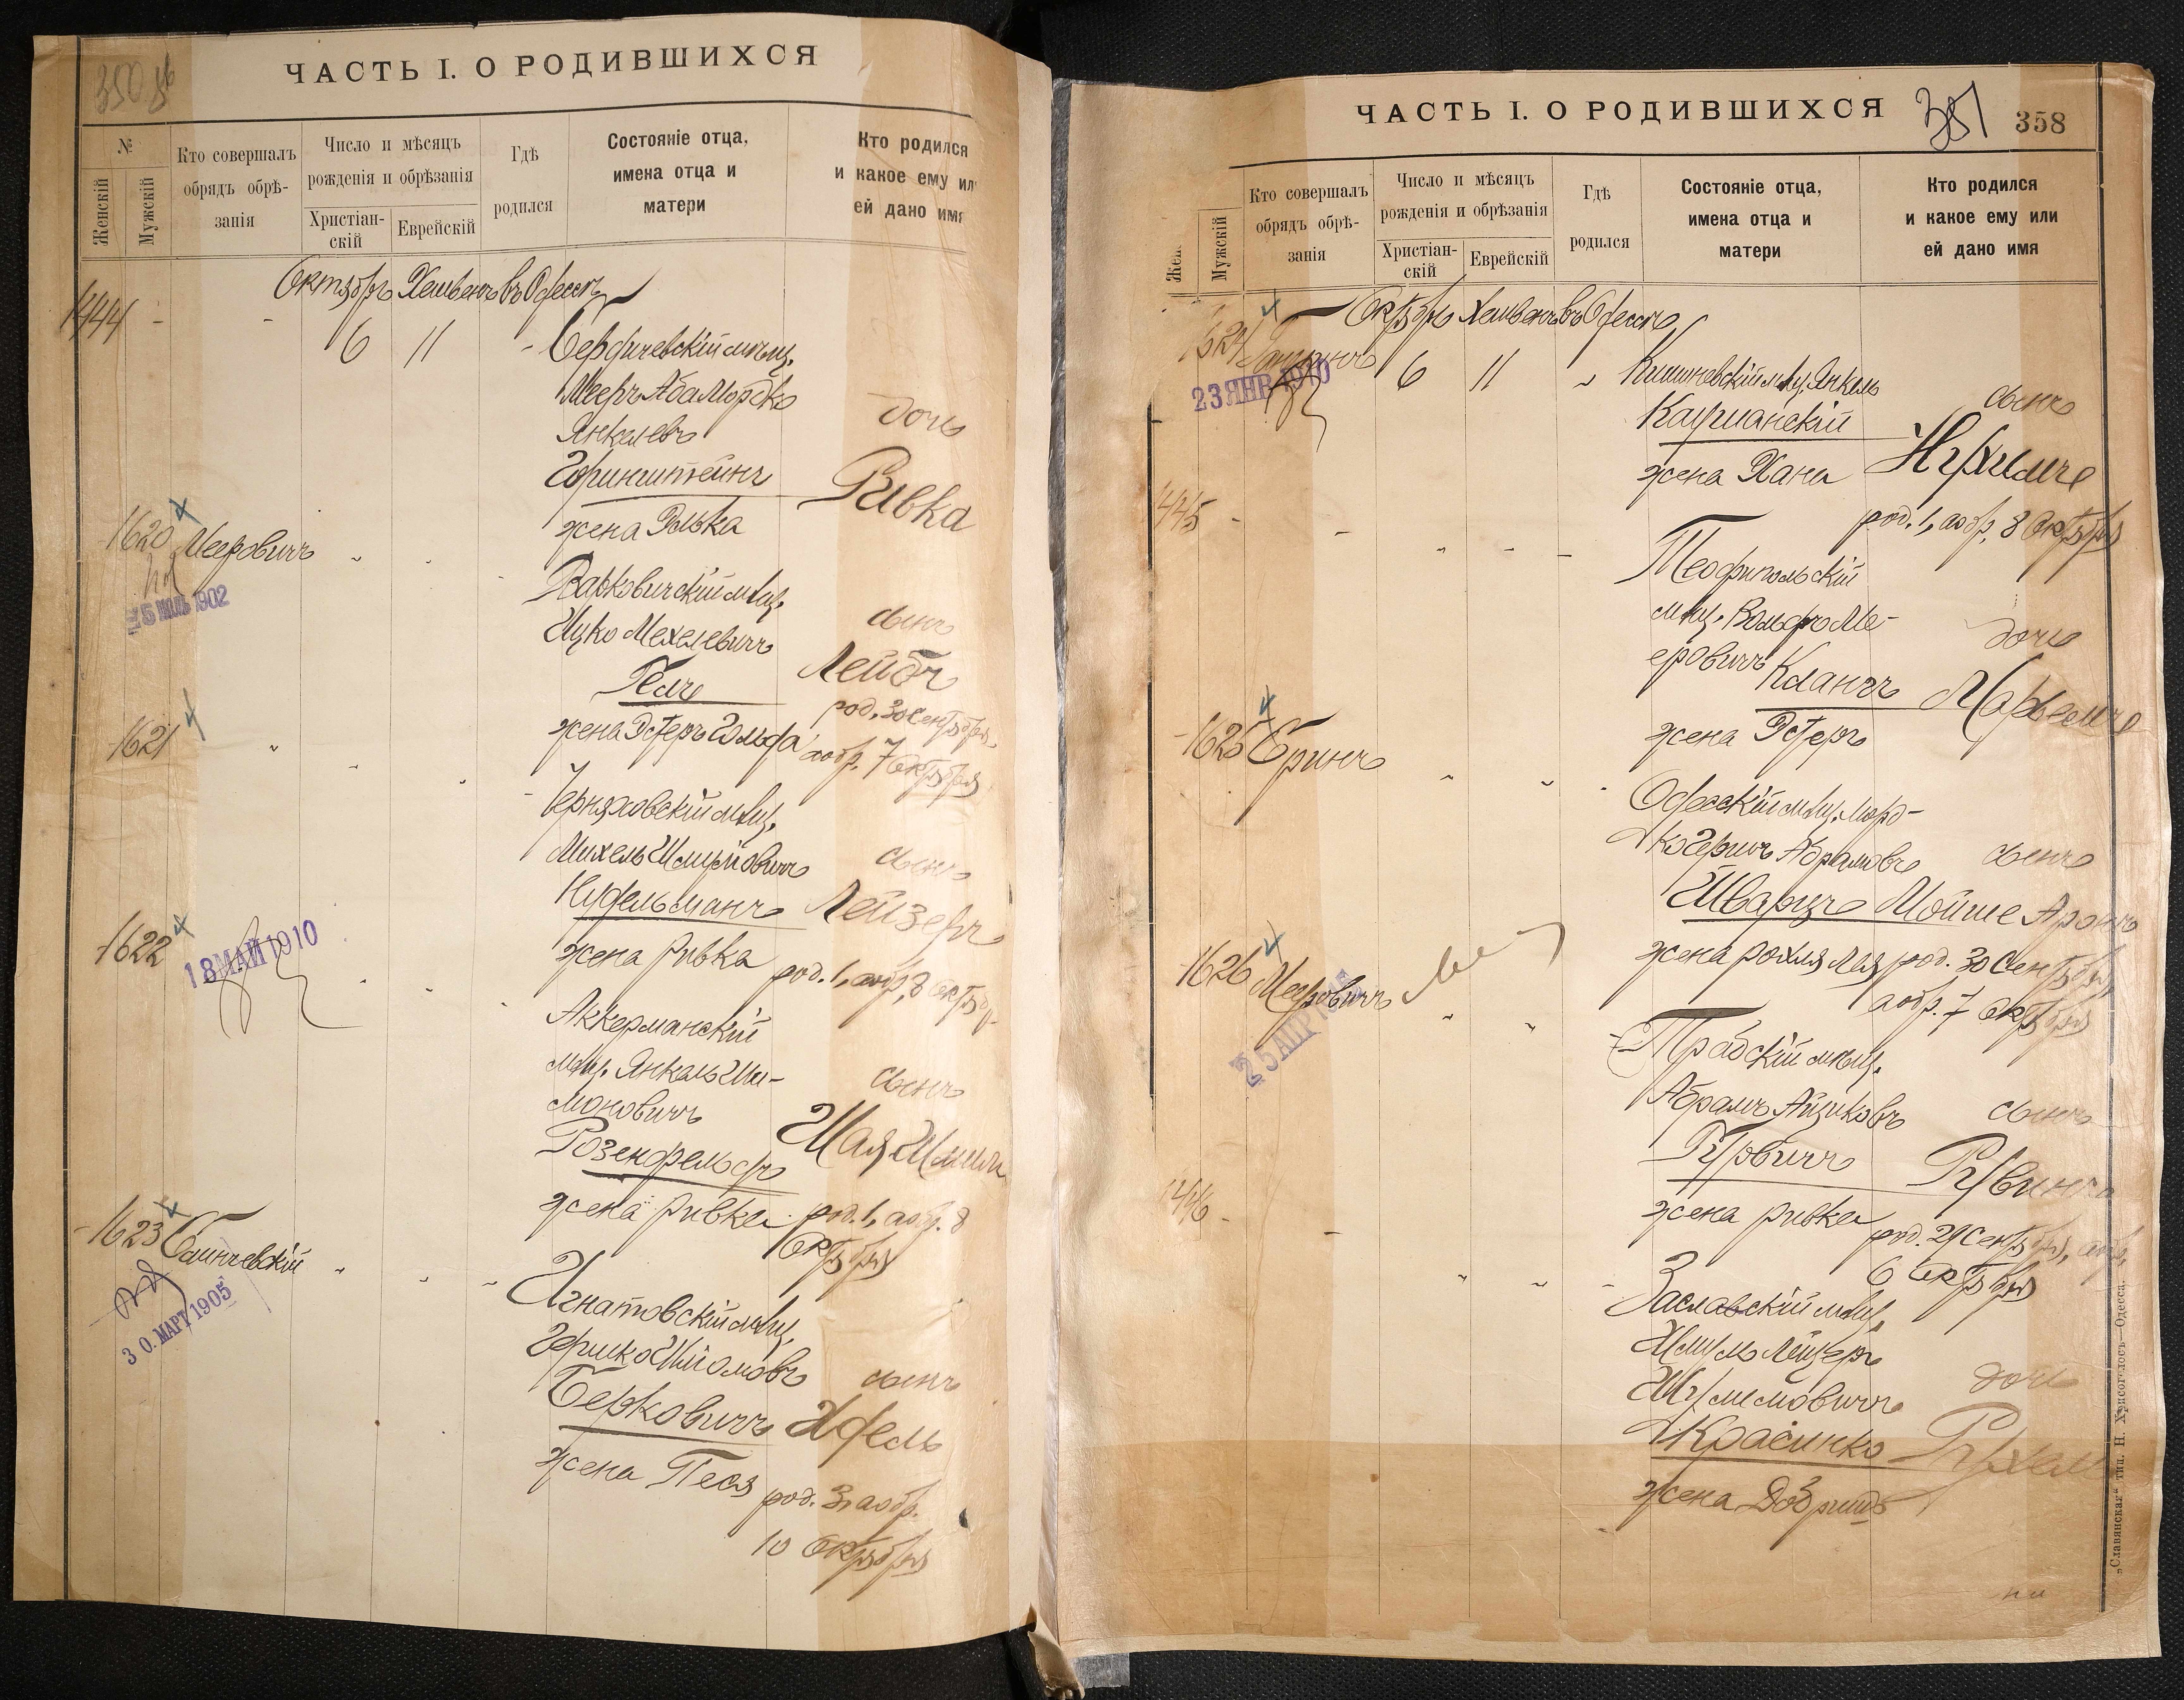 350
ЧАСТЬ I. О РОДИВШИХСЯ
№
Женскій
Мужскій
Кто совершалъ обрядъ обрѣ-занія
Число и мѣсяцъ рожденія и обрѣзанія
Христіан-скій
Еврейскій
Гдѣ родился
Состояніе отца, имена отца и матери
Кто родился и какое ему ил ей дано имя
Октябрь Хешвенъ въ Одессѣ
1444 - - 6 11 -
Бердичевскій мѣщ.
Мееръ Аба Мордко
Янкелевъ
Горинштейнъ
жена Элька
дочь
Ривка
1620 Мееровичъ
5 1902
Варковичскій мѣщ.
Ицко Мехелевичъ
Гелъ
жена Эстеръ Гольда
сынъ
Лейбъ
род. 30 Сентября,
а обр. 7 Октября
1621
Черняховскій мѣщ.
Михель Шмулевичъ
Нудельманъ
жена Ривка
сынъ
Лейзеръ
род. 1, а обр. 8 Октябр.
1622
18 МАЙ 1910
Аккерманскій
мѣщ. Янкель Ши-
моновичъ
Розенфельдъ
жена Ривка
сынъ
Шая
род. 1, а обр. 8
Октября
1623
30. МАРТ 1905
Игнатовскій мѣщ.
Гершко Шиомовъ
Берковичъ
жена Песя
сынъ
Удель
род. 3, а обр.
10 Октября
ЧАСТЬ I. О РОДИВШИХСЯ
351
358
Жен
Мужскій
Кто совершалъ обрядъ обрѣ-занія
Число и мѣсяцъ рожденія и обрѣзанія
Христіан-скій
Еврейскій
Гдѣ родился
Состояніе отца, имена отца и матери
Кто родился и какое ему или ей дано имя
Октябрь Хешвенъ въ Одессѣ
1624
23 ЯНВ 1910
6 11
Кишиневскій мѣщ. Янкель
Каушанскій
жена Хана
сынъ
Нухимъ
род. 1, а обр. 8 Октября
445 - -
Теофипольскій
мѣщ. Вольфъ Ме-
еровичъ Кланцъ
жена Эстеръ
дочь
Марьемъ
1625 Гринъ
Одесскій мѣщ. Морд-
ко Герш Абрамовъ
Шварцъ
жена Рохля Лея
сынъ
Мойше Аронъ
род. 30 Сентября,
а обр. 7 Октября
1626 Мееровичъ
25 АПР
Грабскій мѣщ.
Абрамъ Айзиковъ
Гурвичъ
жена Ривка
сынъ
Рувинъ
род. 29 Сентября, а обр.
6 Октября
446 - -
Заславскій мѣщ.
Шмуль Лейзеръ
Шулимовичъ
Красинко
жена Добришъ
дочь
Рухля
„Славянская“ тип. Н. Хрисогелосъ—Одесса.